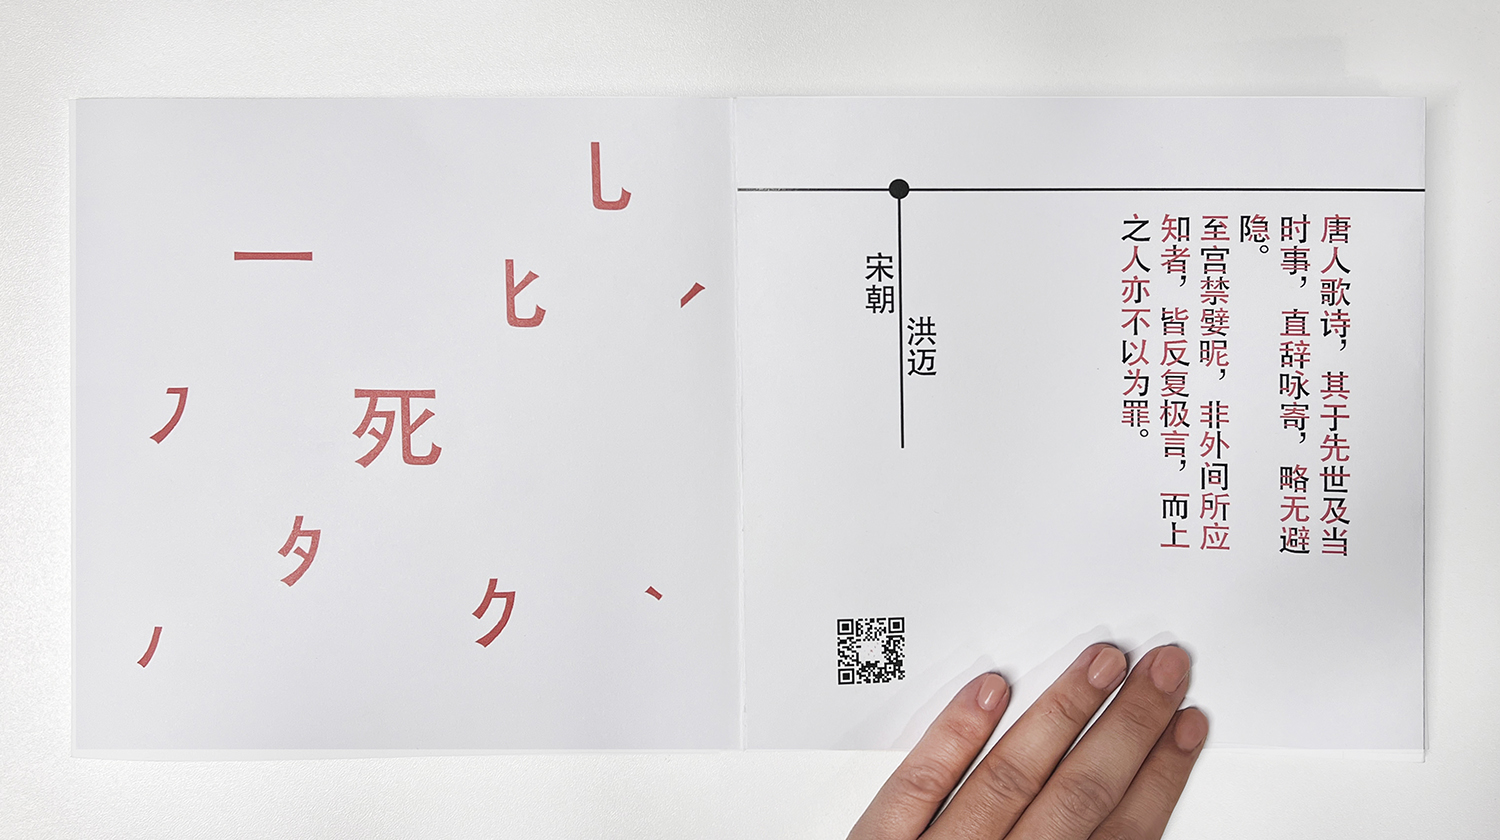 乚
一
匕
㇒
㇇
死
夕
ク
丶
丿
唐人歌诗，其于先世及当
时事，直辞咏寄，略无避
隐。
至宫禁嬖昵，非外间所应
知者，皆反复极言，而上
之人亦不以为罪。
洪迈
宋朝